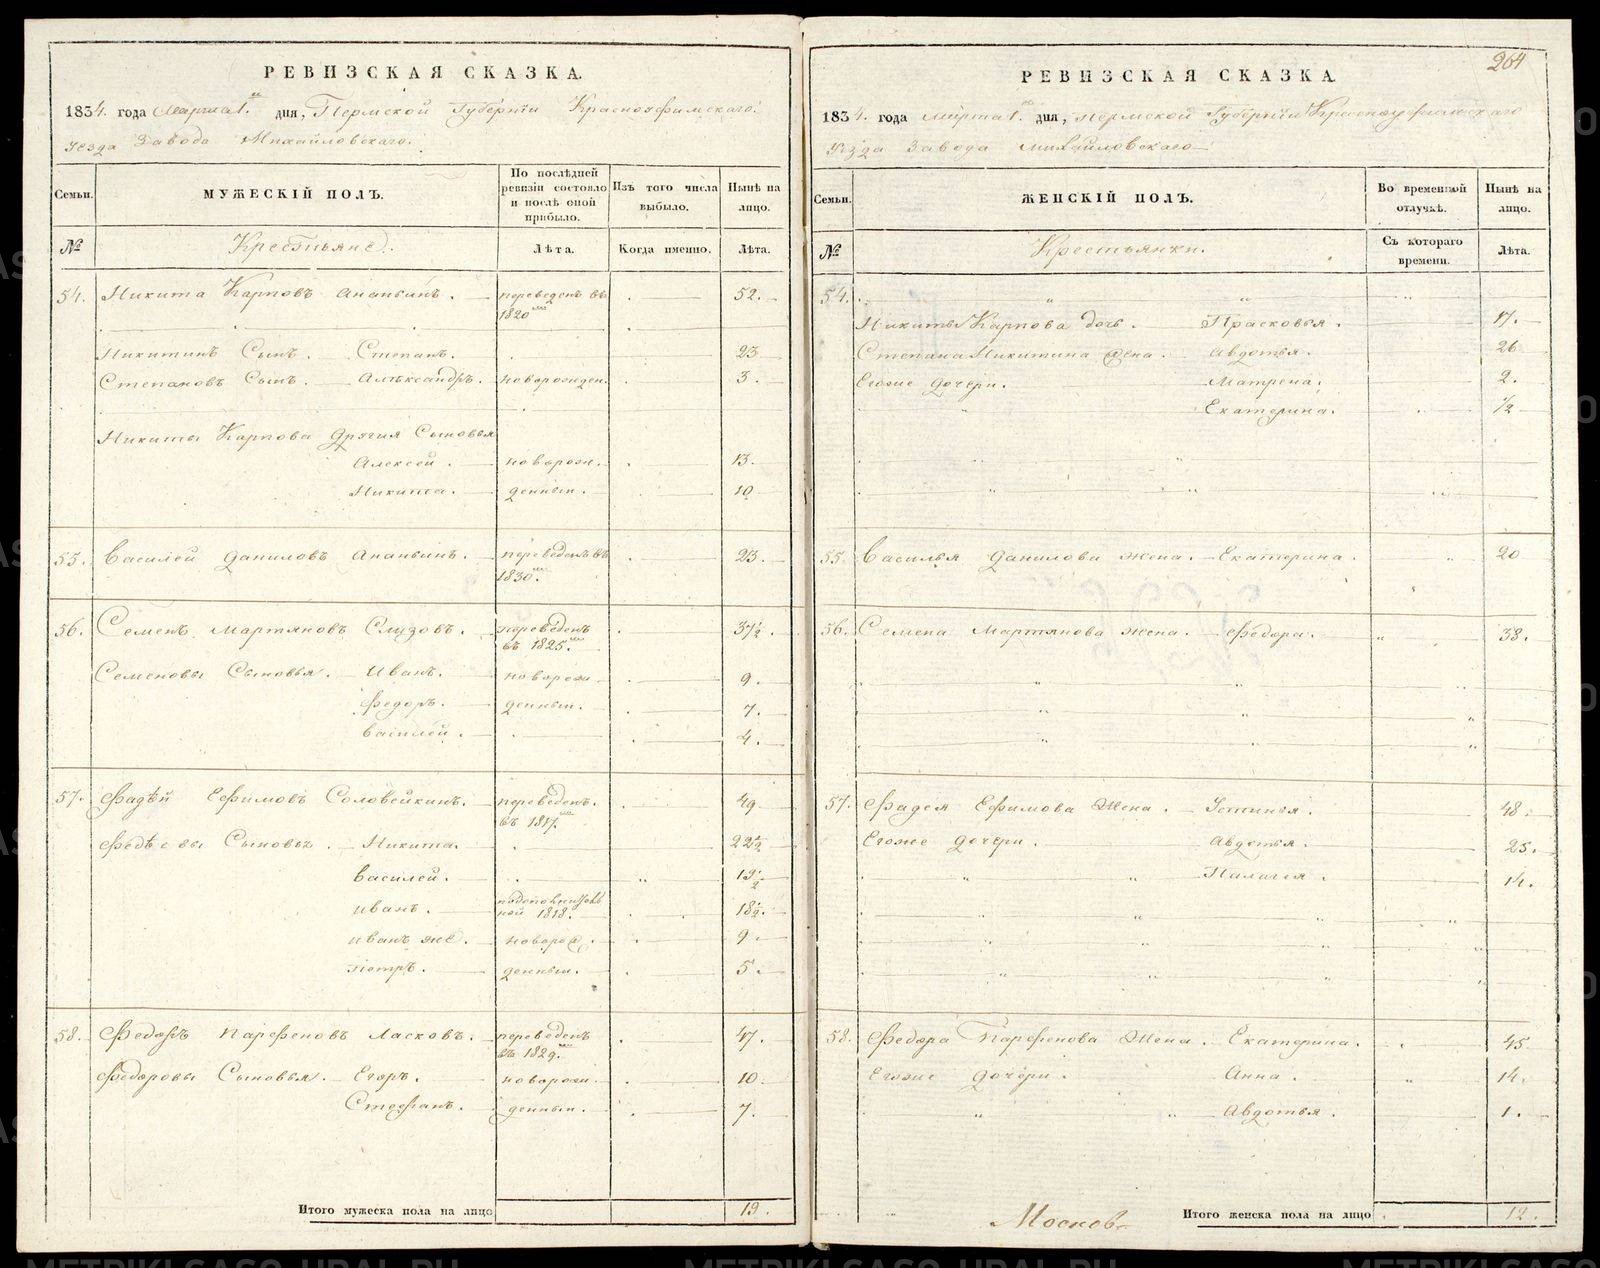 РЕВИЗСКАЯ СКАЗКА.
1834. года Марта 1. дня, Пермской Губернiи Красноуфимскаго
Уезда Завода Михайловскаго.
Семьи.
МУЖЕСКIЙ ПОЛЪ.
По послѣдней ревизiи состояло и послѣ оной прибыло.
Изъ того числа выбыло.
Нынѣ на лицо.
№
Крестьяне.
Лѣта.
Когда именно.
Лѣта.
54. Никита Карповъ Ананьинъ. переведенъ въ 52.
1820
Никитинъ Сынъ. Степанъ. 23
Степановъ Сынъ. Александръ. новорожден. 3.
Никиты Карпова другiя Сыновья
Алексей. новорож. 13.
Никита. денныи. 10
55. Василей Даниловъ Ананьинъ. переведенъ въ 23.
1830.
56. Семенъ Мартяновъ Слузовъ. переведенъ 37½.
въ 1825.
Семеновы Сыновья. Иванъ. новорож 9.
Федоръ. денныи. 7.
Василей. 4.
57. Фадѣй Ефимовъ Соловейкинъ. переведенъ. 49
въ 1817.
Фадѣевы Сыновья. Никита. 22½
Василей. 19½
Иванъ. 1818. 18½.
Иванъ же. новорож. 9.
Петръ. денныи. 5.
58. Федоръ Парфеновъ Ласковъ. переведенъ 47.
въ 1829.
Федоровы Сыновья. Егоръ. новорож 10.
Стефанъ. денныи. 7.
Итого мужеска пола на лицо 19.
264
РЕВИЗСКАЯ СКАЗКА.
1834. года Марта 1. дня, Пермской Губернiи Красноуфимскаго
Уезда Завода Михайловскаго
Семьи.
ЖЕНСКIЙ ПОЛЪ.
Во временной отлучкѣ.
Нынѣ на лицо.
№
Крестьянки.
Съ котораго времени.
Лѣта.
54.
Никиты Карпова дочь. Прасковья. 17.
Степана Никитина жена. Авдотья. 26
Егоже дочери. Матрена. 2.
Екатерина. ½
55. Василья Данилова жена. Екатерина. 20
56. Семена Мартянова жена. Федора. 38.
57. Фадея Ефимова Жена. Устинья. 48.
Егоже дочери. Авдотья. 25.
Палагея. 14.
58. Федора Парфенова Жена. Екатерина. 45
Егоже дочери. Анна. 14.
Авдотья. 1.
Итого женска пола на лицо 12.
Москов-
METRIKI.GASO-URAL.RU